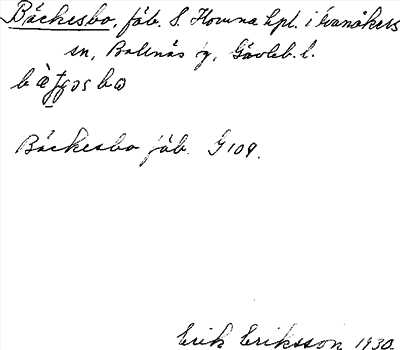 Bäckesbo, fäb. S. Homna hpl. i Svanåkers
sn, Bollnäs tg, Gävleb. l.
Bäckesbo fäb. G 109.
Erik Eriksson 1930.